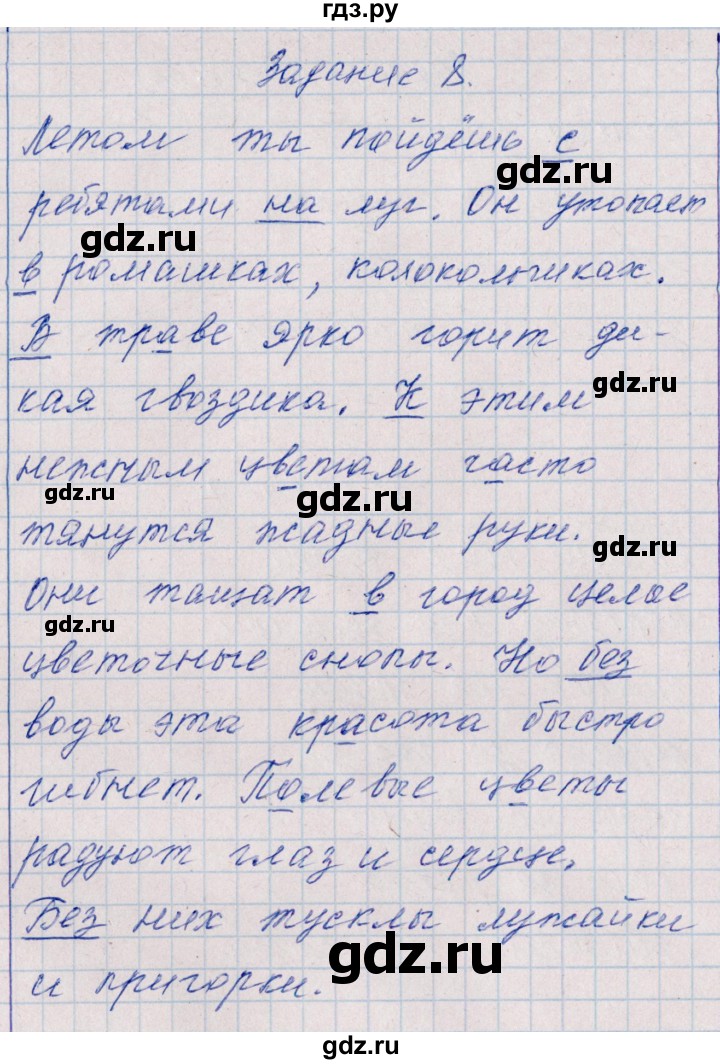 гдз.ру
Задание 8.
Летом ты пойдёшь с
ребятами на луг. Он утопает
в ромашках, колокольчиках.
В траве ярко горит ди-
кая гвоздика. К этим
нежным цветам часто
тянутся жадные руки.
Они тащат в город целые
цветочные снопы. Но без
воды эта красота быстро
гибнет. Полевые цветы
радуют глаз и сердце.
Без них тусклы лужайки
и пригорки.
gdz.ru
gdz.ru
gdz.ru
gdz.ru
gdz.ru
gdz.ru
gdz.ru
gdz.ru
gdz.ru
gdz.ru